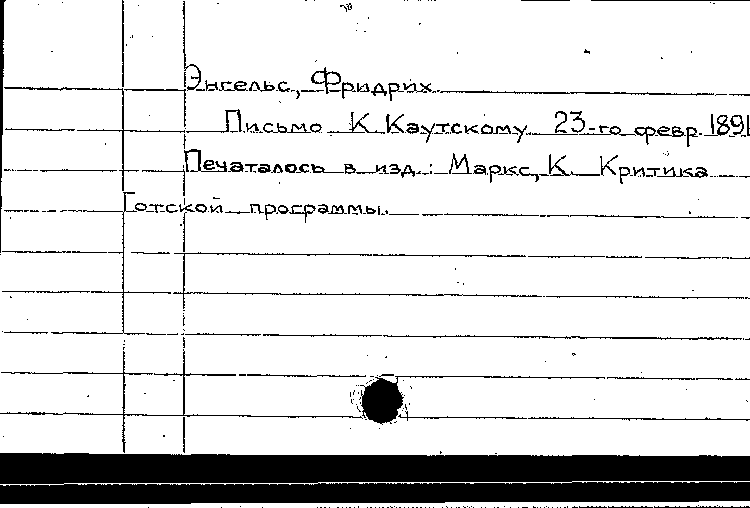 Энгельс, Фридрих
Письмо К Каутскому 23-го февр. 1891
Печаталось в изд.: Маркс, К. Критика
Готской программы.